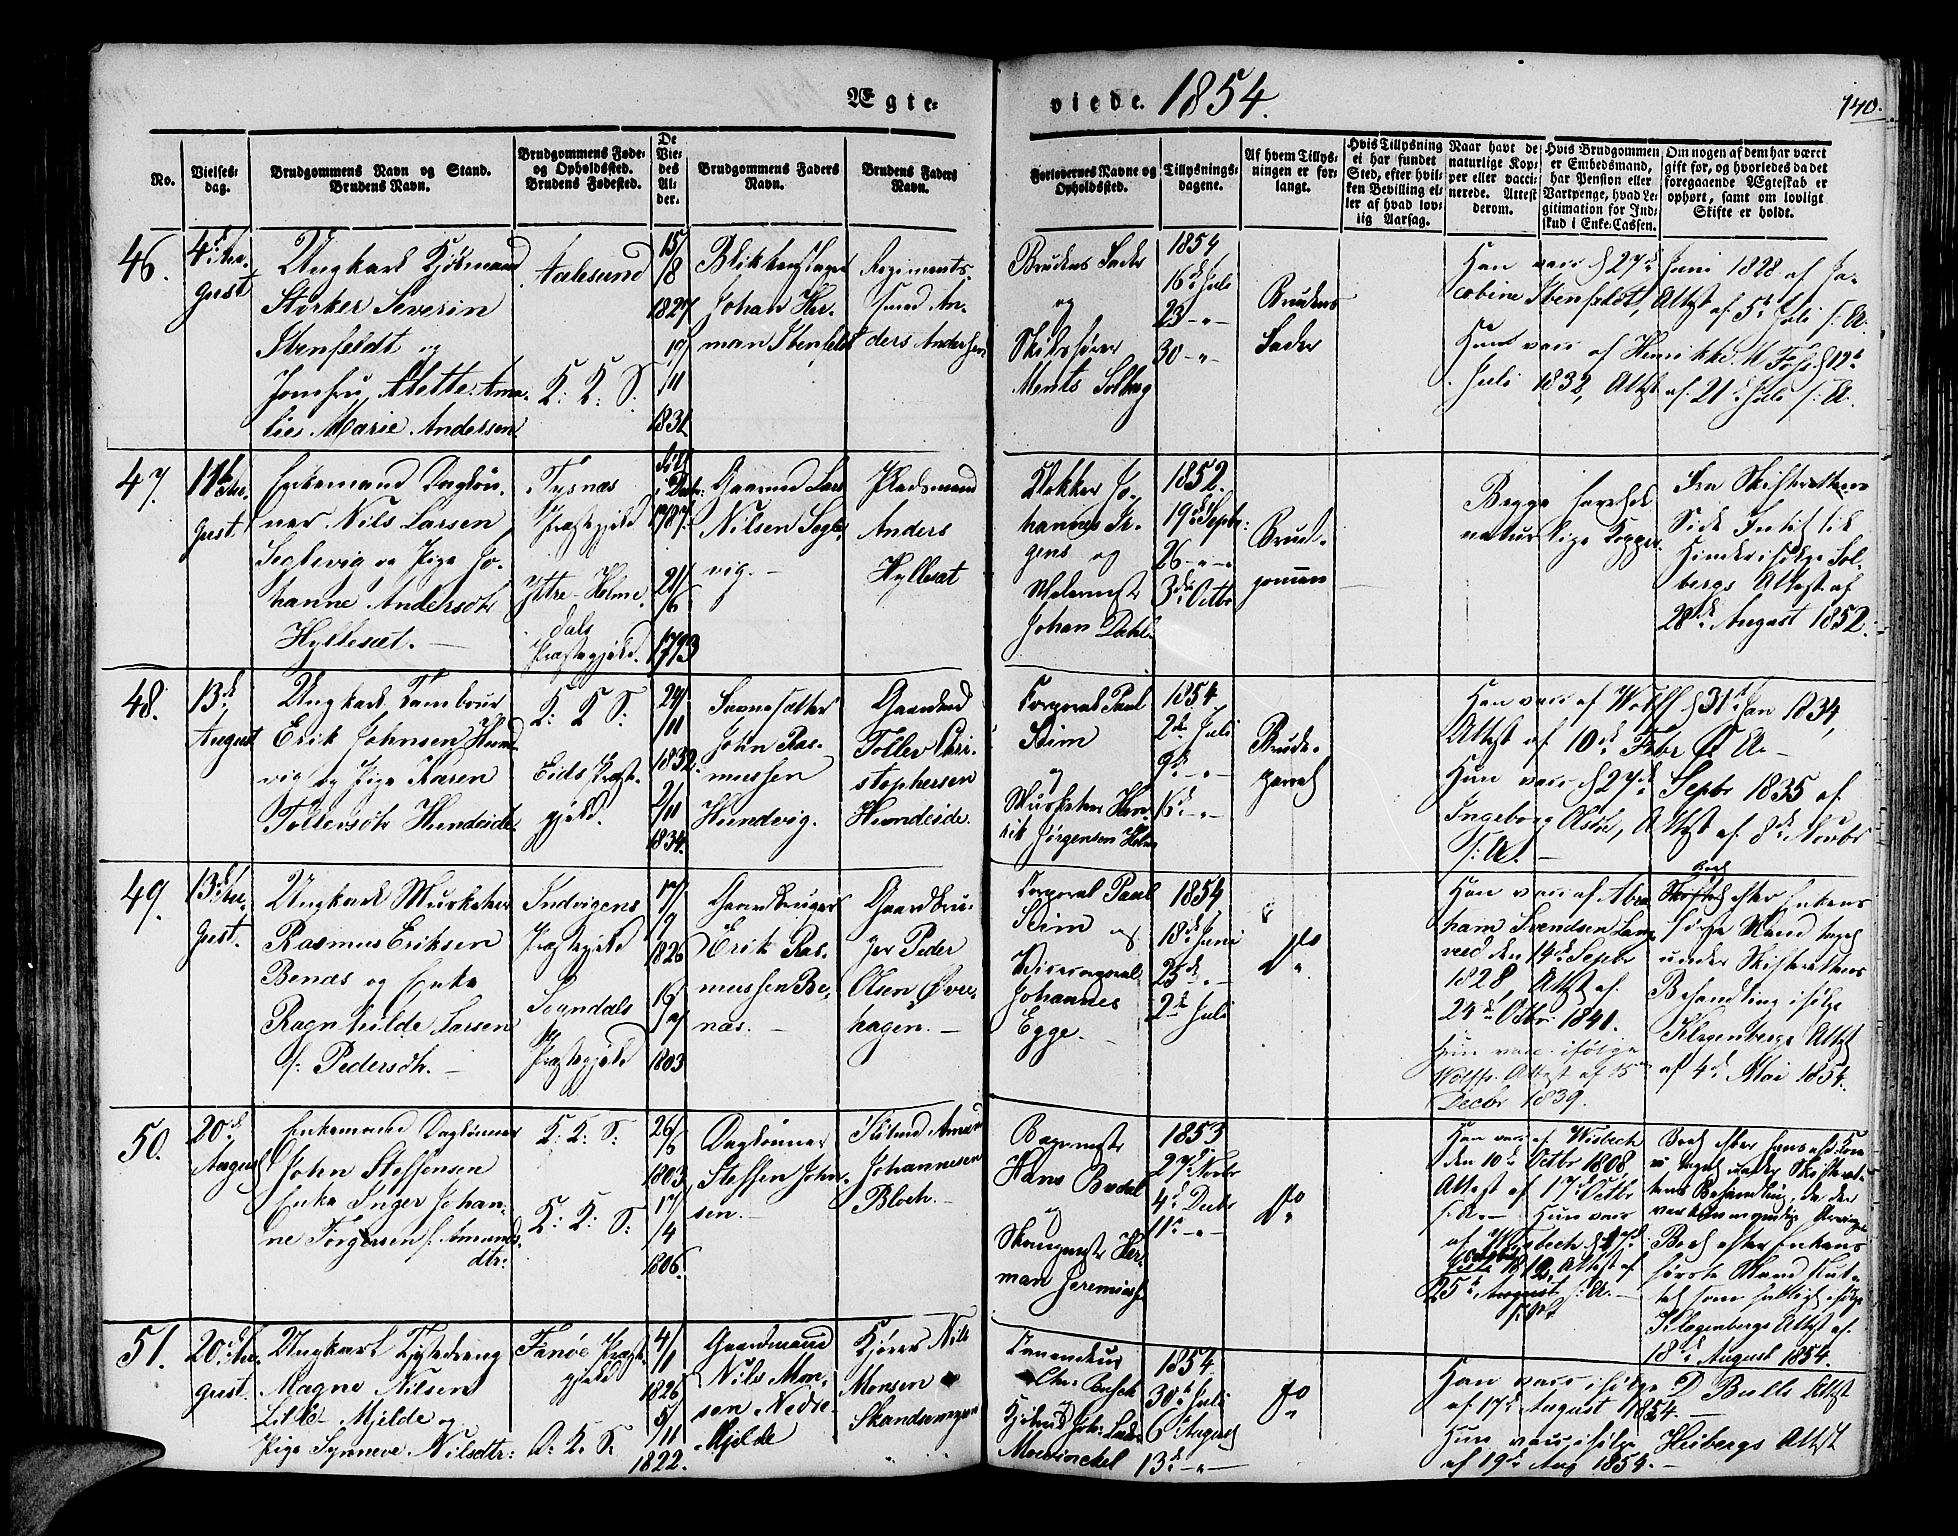 Ægte-
viede. 1854.
140.
No.
Vielses-
dag.
Brudgommens Navn og Stand.
Brudens Navn.
Brudgommens Føde-
og Opholdssted.
Brudens Fødested.
De
Vie-
des
Al-
der.
Brudgommens Faders
Navn.
Brudens Faders
Navn.
Forlovernes Navne og
Opholdssted.
Tillysnings-
dagene.
Af hvem Tillys-
ningen er for-
langt.
Hvis Tillysning
ei har fundet
Sted, efter hvil-
ken Bevilling el-
ler af hvad lov-
lig Aarsag.
Naar havt de
naturlige Kop-
per eller vacci-
nerede. Attest
derom.
Hvis Brudgommen
er Embedsmand,
har Pension eller
Vartpenge, hvad Le-
gitimation for Ind-
skud i Enke-Cassen.
Om nogen af dem har været
gift før, og hvorledes da det
foregaaende Ægteskab er
ophørt, samt om lovligt
Skifte er holdt.
46.
4de Au-
gust
Ungkarl Kjøbmand
Størker Severin
Stenfeldt og
Jomfru Alette Ama-
lie Marie Andersen
Aalesund
K: K: S:
15/
/8
1827
19/
/11
1831
Blikkenslager
Johan Her-
man Stenfeldt
Regiments-
smed An-
ders Andersen
Brudens Fader
og
Skibsfører
Ments Solberg
1854
16de Juli
23 - " -
30 - " -
Brudens
Fader
Han vacc. d 27de Juni 1828 af Ja-
cobine Stenfeldt, Attest af 5te Juli s: A.
Hun vacc. af Henrikke M Foss d 12te
Juli 1832, Attest af 21de Juli s: A.
47.
11te Au-
gust.
Enkemand Dagløn-
ner Nils Larsen
Seglevig og Pige Jo-
hanne Andersdtr
Hyllesæt. -
Tysnæs
Præstegjeld
Yttre-Holme-
dals
Præstegjeld.
1787.
21/
/6
1793
Gaardmd Lars
Nilsen Segle-
vig. -
Pladsmand
Anders
Hyllesæt
Klokker Jo-
hannes Ir-
gens og
Malermstr
Johan Dahl.
1852.
19de Septbr:
26 - " -
3die Octbr
Brud-
gommen
Begge havt de
naturlige Kopper.
Fra Skifterettens
Side Intet til
Hinder ifølge Sol-
bergs Attest af
28de August 1852.
48.
13de
August
Ungkarl Tambour
Erik Johnsen Hund-
vig og Pige Karen
Tollefsdtr Hundeide.
K: K: S:
Eids Præste-
gjeld.
24/
/11
1832.
2/
/11
1834.
John Ras-
mussen
Hundvig.
Gaardmd
Tollev Chri-
stophersen
Hundeide.
Corporal Paul
Stim
og
Musketer Hen-
rik Jørgensen Holm
1854.
2den Juli
9de - " -
16de - " -
Brude-
parret
Han vacc. af Wolff d 31te Jan 1834,
Attest af 10de Febr s: A. -
Hun vacc. d 27de Septbr 1835 af
Ingeborg Olsdtr, Attest af 8de Novbr
s: A. -
49.
13de Au-
gust.
Ungkarl Musketer
Rasmus Eriksen
Benæs og Enke
Ragnhilde Larsen
f: Pedersdtr. -
Indvigens
Præstegjeld
Sogndals
Præstegjeld
17/
/9
1826
16/
/7
1803
Gaardbruger
Erik Ras-
mussen Be-
næs. -
Gaardbru-
ger Peder
Olsen Øvre-
hagen. -
Corporal Paul
Stim og
Vicecorporal
Johannes
Egge. -
1854
18de Juni
25de - " -
2den Juli
Do
Han vacc. af Abra-
ham Svendsen Lang-
ved den 14de Septbr
1828, Attest af
24de Octbr 1841.
Hun vacc. ifølge
Wolffs Attest af 15de
Decbr 1839.
Boet
efter Enkens
første Mand taget
under Skifterettens
Behandling ifølge
Klagenbergs Attest
af 4de Mai 1854.
50.
20de
August
Enkemand Daglønner
John Steffensen
Enke Inger Johan-
ne Torgersen f. Amunds-
dtr:
K: K: S:
K: K: S:
26/
/6
1803
17/
/4
1806.
Daglønner
Steffen John-
sen. -
Amund
Johannesen
Bloch. -
Bagermstr
Hans Bødal
og
Skrædermstr Her-
man Jeremiass.
1853
27de Novbr
4de Decbr
11te - " -
Do
Han vacc. af Wisbech
den 10de Octbr 1808,
Attest af 17de Octbr
s: A. - Hun vacc.
af Wisbech d 17de
1812, Attest af
25de August s: A. -
Boet efter hans afd. Kone
ei taget under Skifteret-
tens Behandling, da der
var kun myndige Arvinger
Boet efter Enkens
første Mand slut-
tet som fallit ifølge
Klagenbergs Attest af
18de August 1854.
51.
20de Au-
gust.
Ungkarl Tjenestedreng
Magne Nilsen
Lille Mjelde og
Pige Synneve Nilsdtr:
Fanøe Præste-
gjeld
D: K: S:
4/
/1
1826
5/
/11
1822.
Gaardmand
Nils Mon-
sen Nedre-
Mjelde
Kjører Nils
Monsen
Skandsemyren
Chr: Busch
og
Kjøbmd Joh: Lud:
Mowinckel
1854
30te Juli
6te August
13de - " -
Do
Han vacc. ifølge D Bulls Attest
af 17de August 1854. -
Hun vacc. ifølge Heibergs Attest
af 19de Aug 1854. -